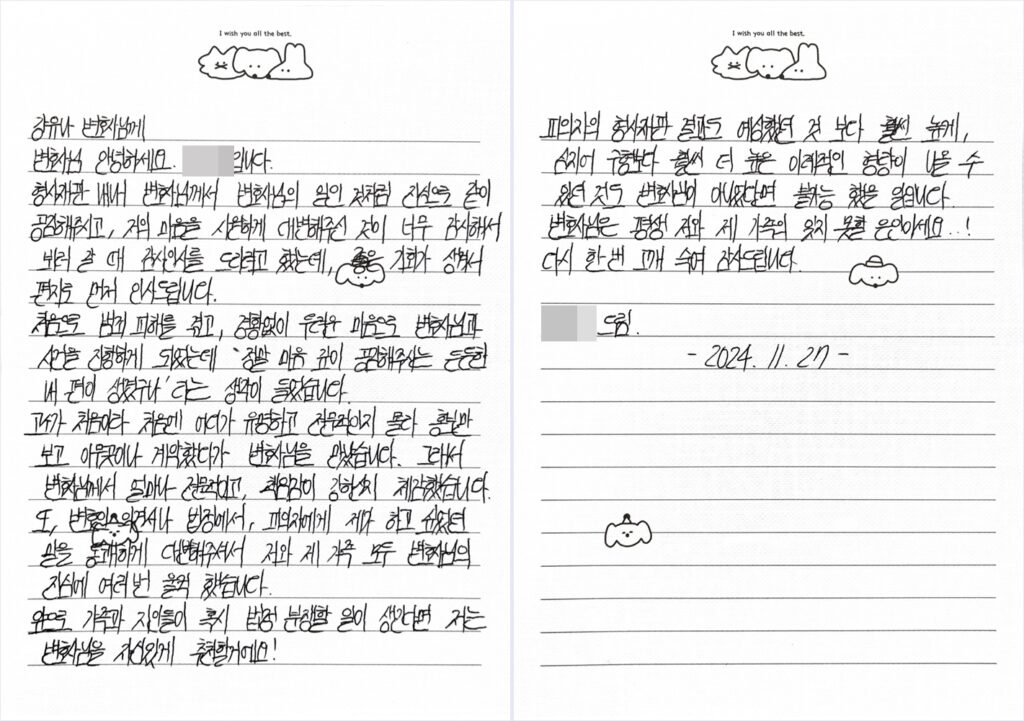 I wish you all the best.
강유나 변호사님께
변호사님 안녕하세요. 입니다.
형사재판 내내 변호사님께서 변호사님의 일인 것처럼 진심으로 같이
공감해주시고, 저의 마음을 시원하게 대변해주신 것이 너무 감사해서
보러 갈 때 감사인사를 드리려고 했는데, 좋은 기회가 생겨서
편지로 먼저 인사드립니다.
처음으로 범죄 피해를 겪고, 경황없이 두려운 마음으로 변호사님과
사건을 진행하게 되었는데 '정말 마음 깊이 공감해주시는 든든한
내 편이 생겼구나' 라는 생각이 들었습니다.
고소가 처음이라 처음에 어디가 유명하고 전문적인지 몰라 홍보만
보고 아무곳이나 계약했다가 변호사님을 만났습니다. 그래서
변호사님께서 얼마나 전문적이고, 책임감이 강한지 체감했습니다.
또, 변호인 의견서나 법정에서, 피의자에게 제가 하고 싶었던
말을 통쾌하게 대변해주셔서 저와 제 가족 모두 변호사님의
진심에 여러 번 울컥 했습니다.
앞으로 가족과 지인들이 혹시 법정 분쟁할 일이 생긴다면 저는
변호사님을 자신있게 추천할거에요!
I wish you all the best.
피의자의 형사재판 결과도 예상했던 것 보다 훨씬 높게,
심지어 구형보다 훨씬 더 높은 이례적인 형량이 나올 수
있던 것도 변호사님이 아니었다면 불가능 했을 일입니다.
변호사님은 평생 저와 제 가족의 잊지 못할 은인이세요..!
다시 한 번 고개 숙여 감사드립니다.
드림.
- 2024. 11. 27 -